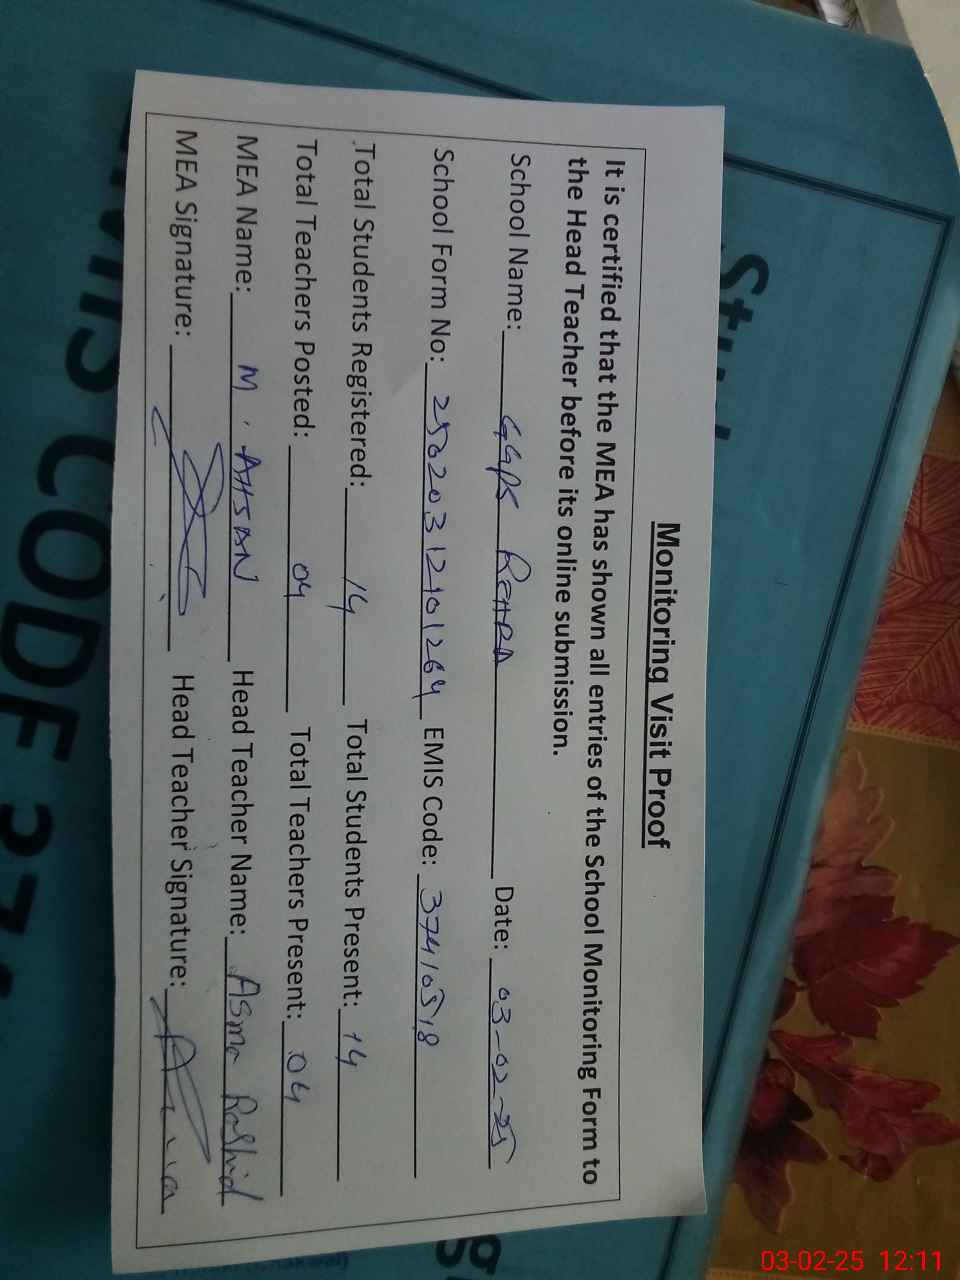 Monitoring Visit Proof
It is certified that the MEA has shown all entries of the School Monitoring Form to
the Head Teacher before its online submission.
School Name: GGPS Date: 03-02-25
School Form No: 250203121401264 EMIS Code: 37410518
Total Students Registered: 14 Total Students Present: 14
Total Teachers Posted: 04 Total Teachers Present: 04
MEA Name: M. AHSAN Head Teacher Name: Asma Rashid
MEA Signature: Head Teacher Signature:
EMIS CODE
03-02-25 12:11